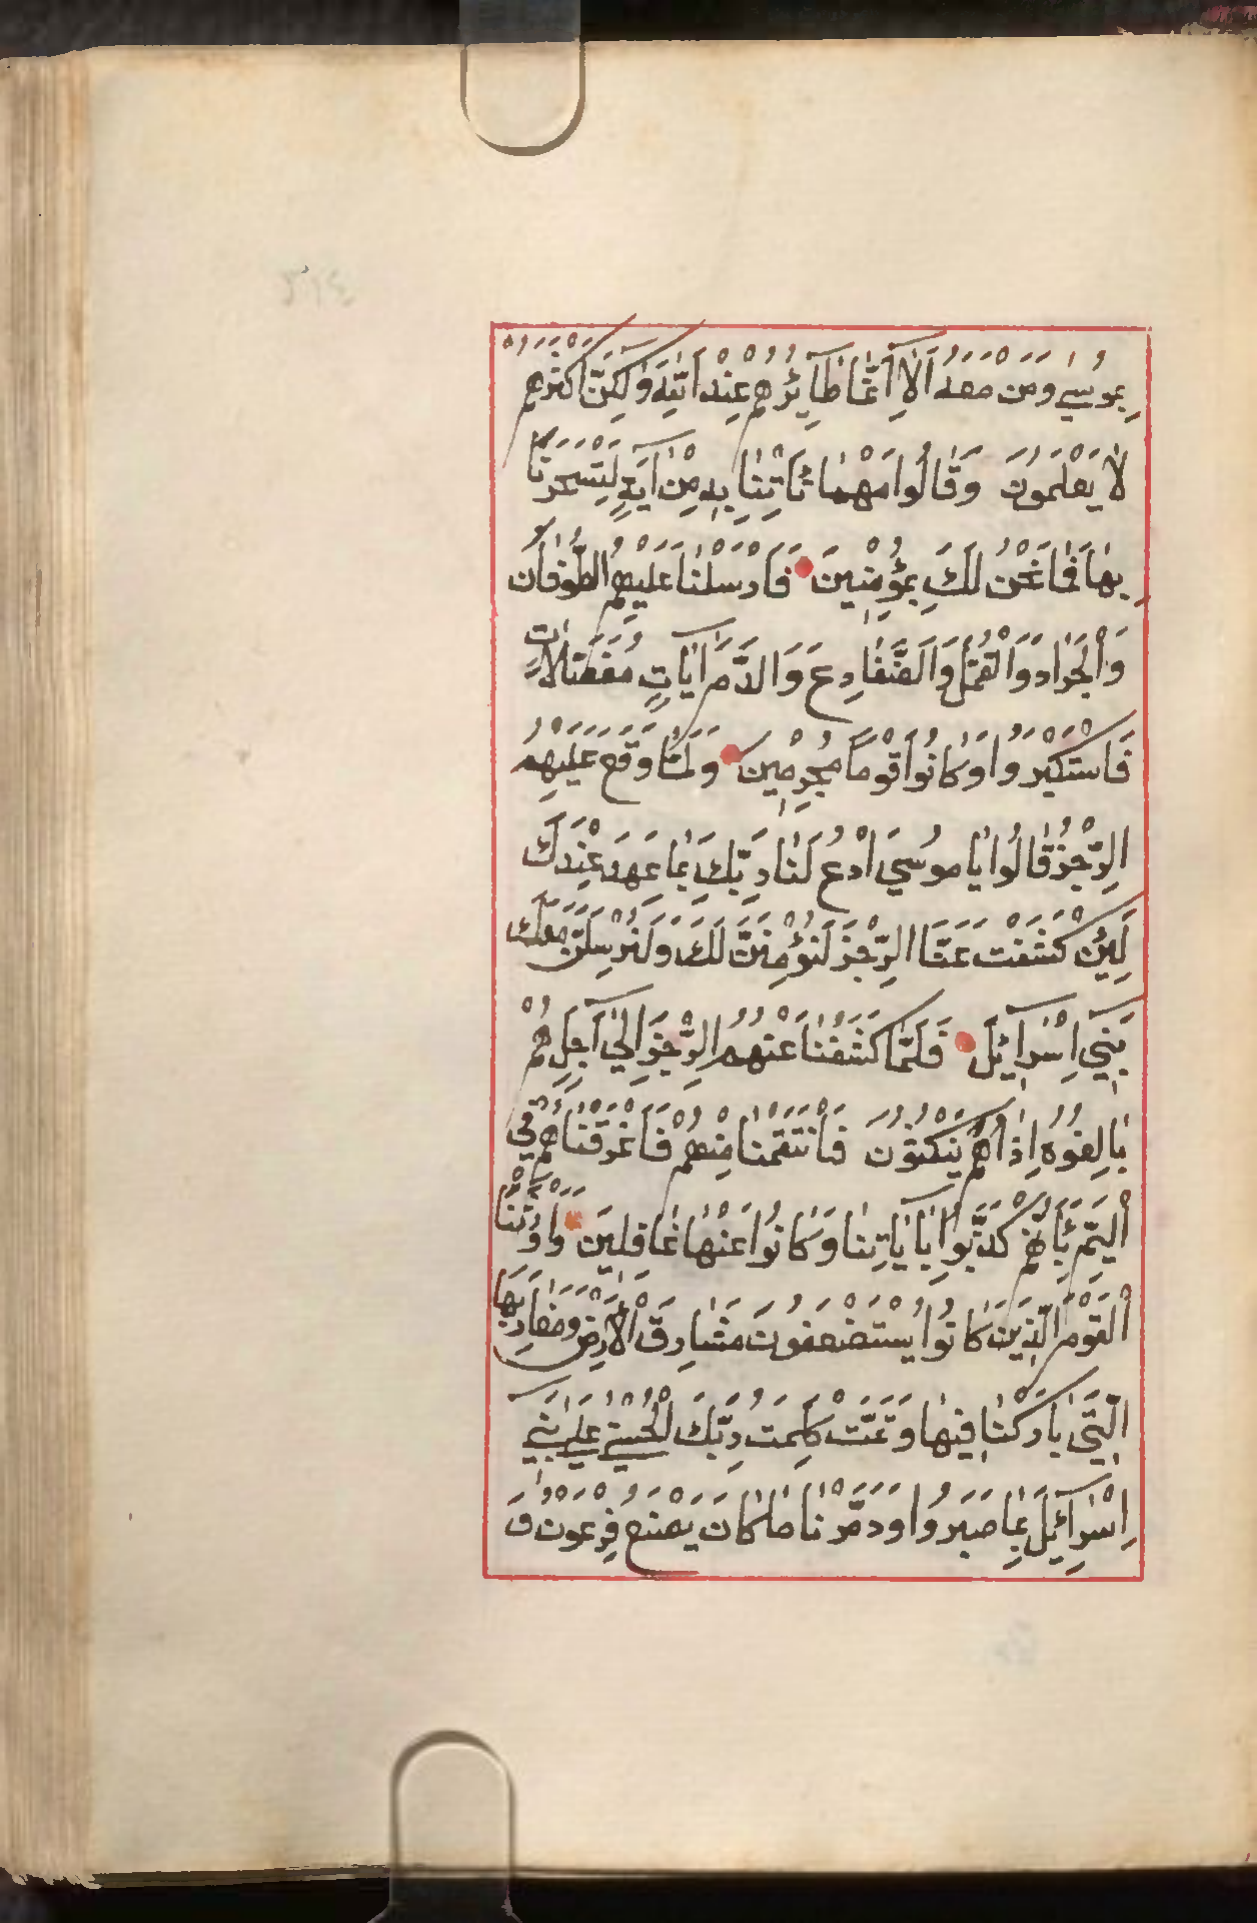 بِمُوسٰي وَمَنْ مَعَهُ اَلَآ اِنَّمَا طَآئِرُهُمْ عِنْدَ اللّٰهِ وَلٰكِنَّ اَكْثَرَهُمْ
لَا يَعْلَمُونَ وَقَالُوا مَهْمَا تَأْتِنَا بِهِ مِنْ اٰيَةٍ لِتَسْحَرَنَا
بِهَا فَمَا نَحْنُ لَكَ بِمُؤْمِنِينَ فَاَرْسَلْنَا عَلَيْهِمُ الطُّوفَانَ
وَالْجَرَادَ وَالْقُمَّلَ وَالضَّفَادِعَ وَالدَّمَ اٰيَاتٍ مُفَصَّلَاتٍ
فَاسْتَكْبَرُوا وَكَانُوا قَوْمًا مُجْرِمِينَ وَلَمَّا وَقَعَ عَلَيْهِمُ
الرِّجْزُ قَالُوا يَا مُوسَي ادْعُ لَنَا رَبَّكَ بِمَا عَهِدَ عِنْدَكَ
لَئِنْ كَشَفْتَ عَنَّا الرِّجْزَ لَنُؤْمِنَنَّ لَكَ وَلَنُرْسِلَنَّ مَعَكَ
بَنِي اِسْرَآئِيلَ فَلَمَّا كَشَفْنَا عَنْهُمُ الرِّجْزَ اِلٰي اَجَلٍ هُمْ
بَالِغُوهُ اِذَا هُمْ يَنْكُثُونَ فَانْتَقَمْنَا مِنْهُمْ فَاَغْرَقْنَاهُمْ فِي
الْيَمِّ بِاَنَّهُمْ كَذَّبُوا بِاٰيَاتِنَا وَكَانُوا عَنْهَا غَافِلِينَ وَاَوْرَثْنَا
الْقَوْمَ الَّذِينَ كَانُوا يُسْتَضْعَفُونَ مَشَارِقَ الْاَرْضِ وَمَغَارِبَهَا
الَّتِي بَارَكْنَا فِيهَا وَتَمَّتْ كَلِمَتُ رَبِّكَ الْحُسْنٰي عَلٰي بَنِي
اِسْرَآئِيلَ بِمَا صَبَرُوا وَدَمَّرْنَا مَا كَانَ يَصْنَعُ فِرْعَوْنُ وَ